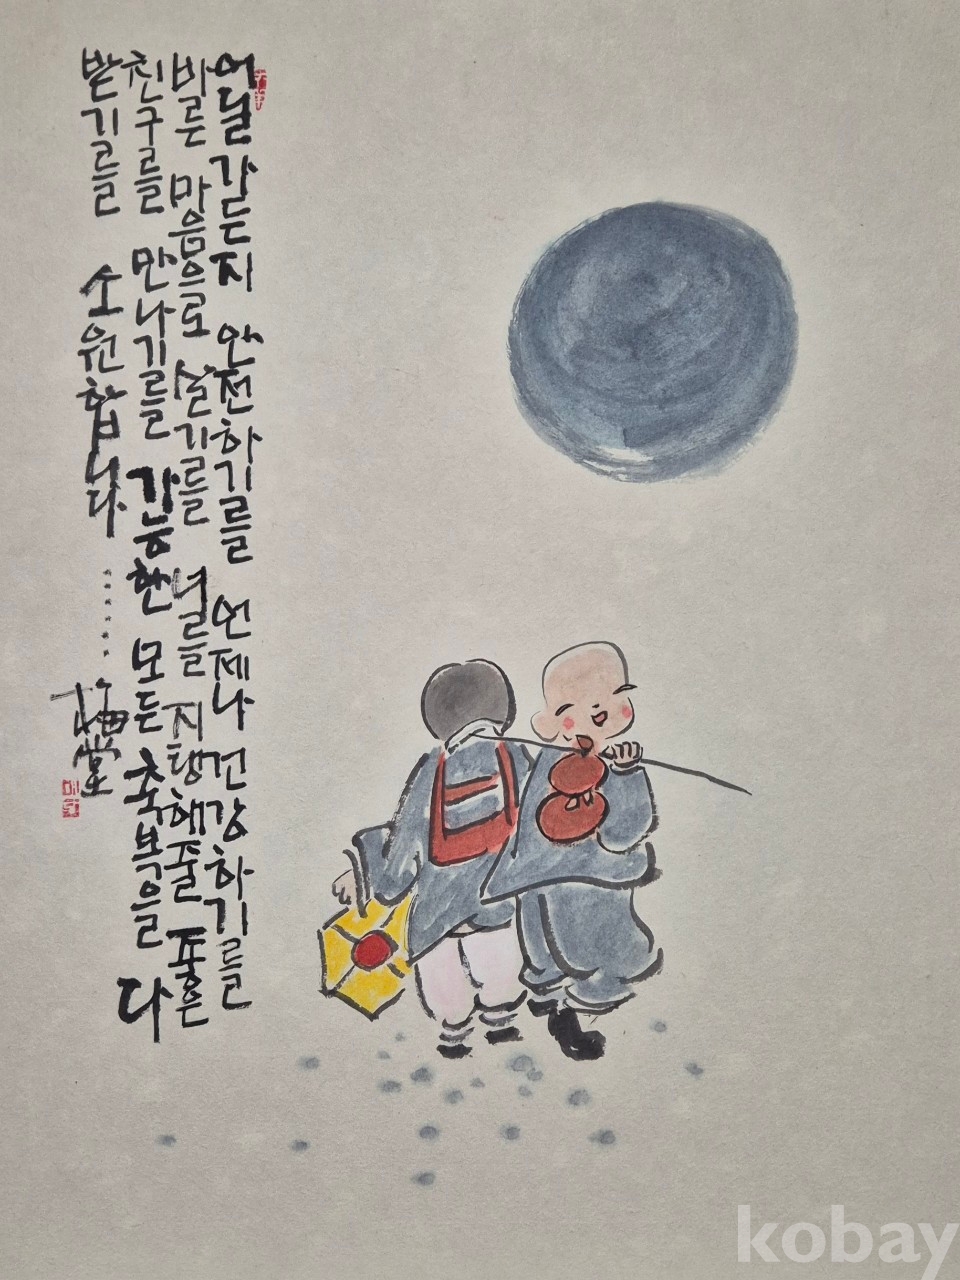 어딜 가든지 안전하기를 언제나 건강하기를
바른 마음으로 살기를 너를 지탱해줄 좋은
친구를 만나기를 가능한 모든 축복을 다
받기를 소원합니다 ......
梅堂
kobay